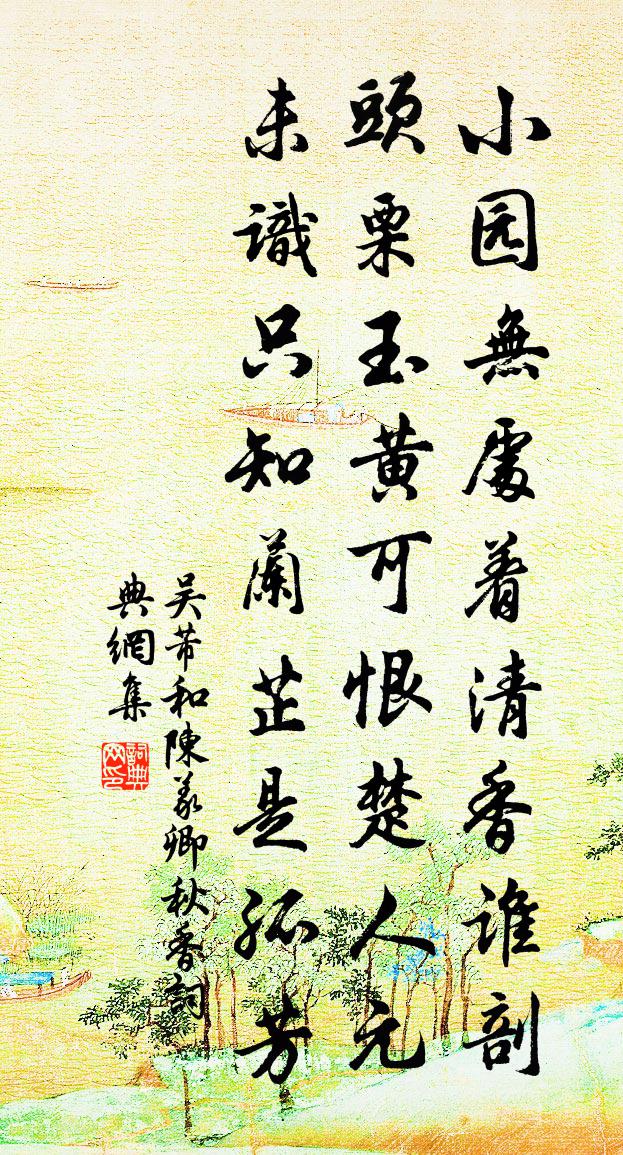 小园無處着清香谁剖
頭栗玉黄可恨楚人元
未識只知蘭芷是孤芳
吴芾和陳羲卿秋香詞
典網集
詞典网印